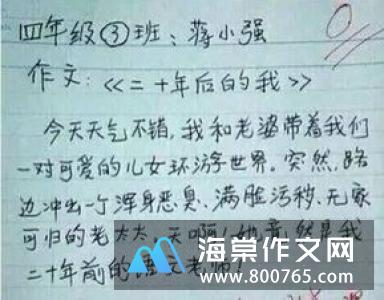 四年级③班：蒋小强
0
作文：<<二十年后的我>>
今天天气不错，我和老婆带着我们
一对可爱的儿女环游世界。突然，路
边冲出一个浑身恶臭、满脸污秽、无家
可归的老太太，天啊！她竟然是我
二十年前的语文老师！
海棠作文网
www.800765.com